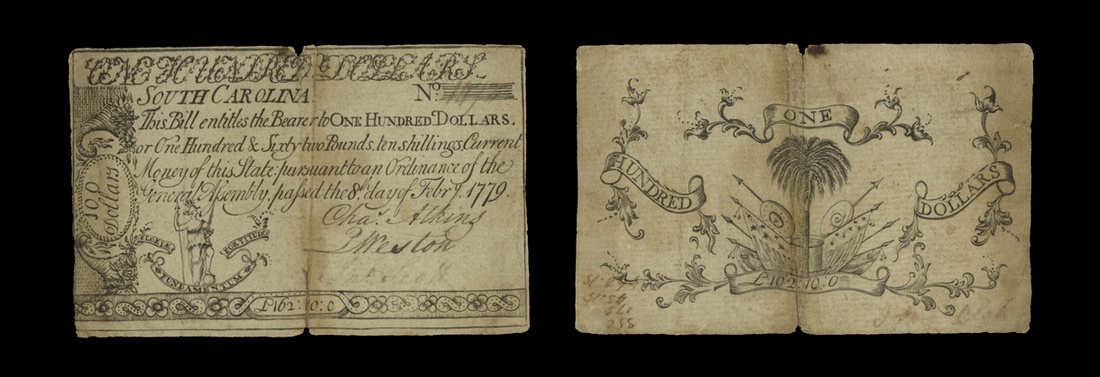 ONE HUNDRED DOLLARS
SOUTH CAROLINA No.
This Bill entitles the Bearer to ONE HUNDRED DOLLARS.
or One Hundred & Sixty two Pounds, ten shillings Current
Money of this State: pursuant to an Ordinance of the
General Assembly, passed the 8th day of Febry. 1779.
100 Dollars
Chas. Atkins
P Weston
GLORIÆ
FORTITUDO
FUNDAMENTUM
£162:10:0
ONE
HUNDRED
DOLLARS
£162:10:0